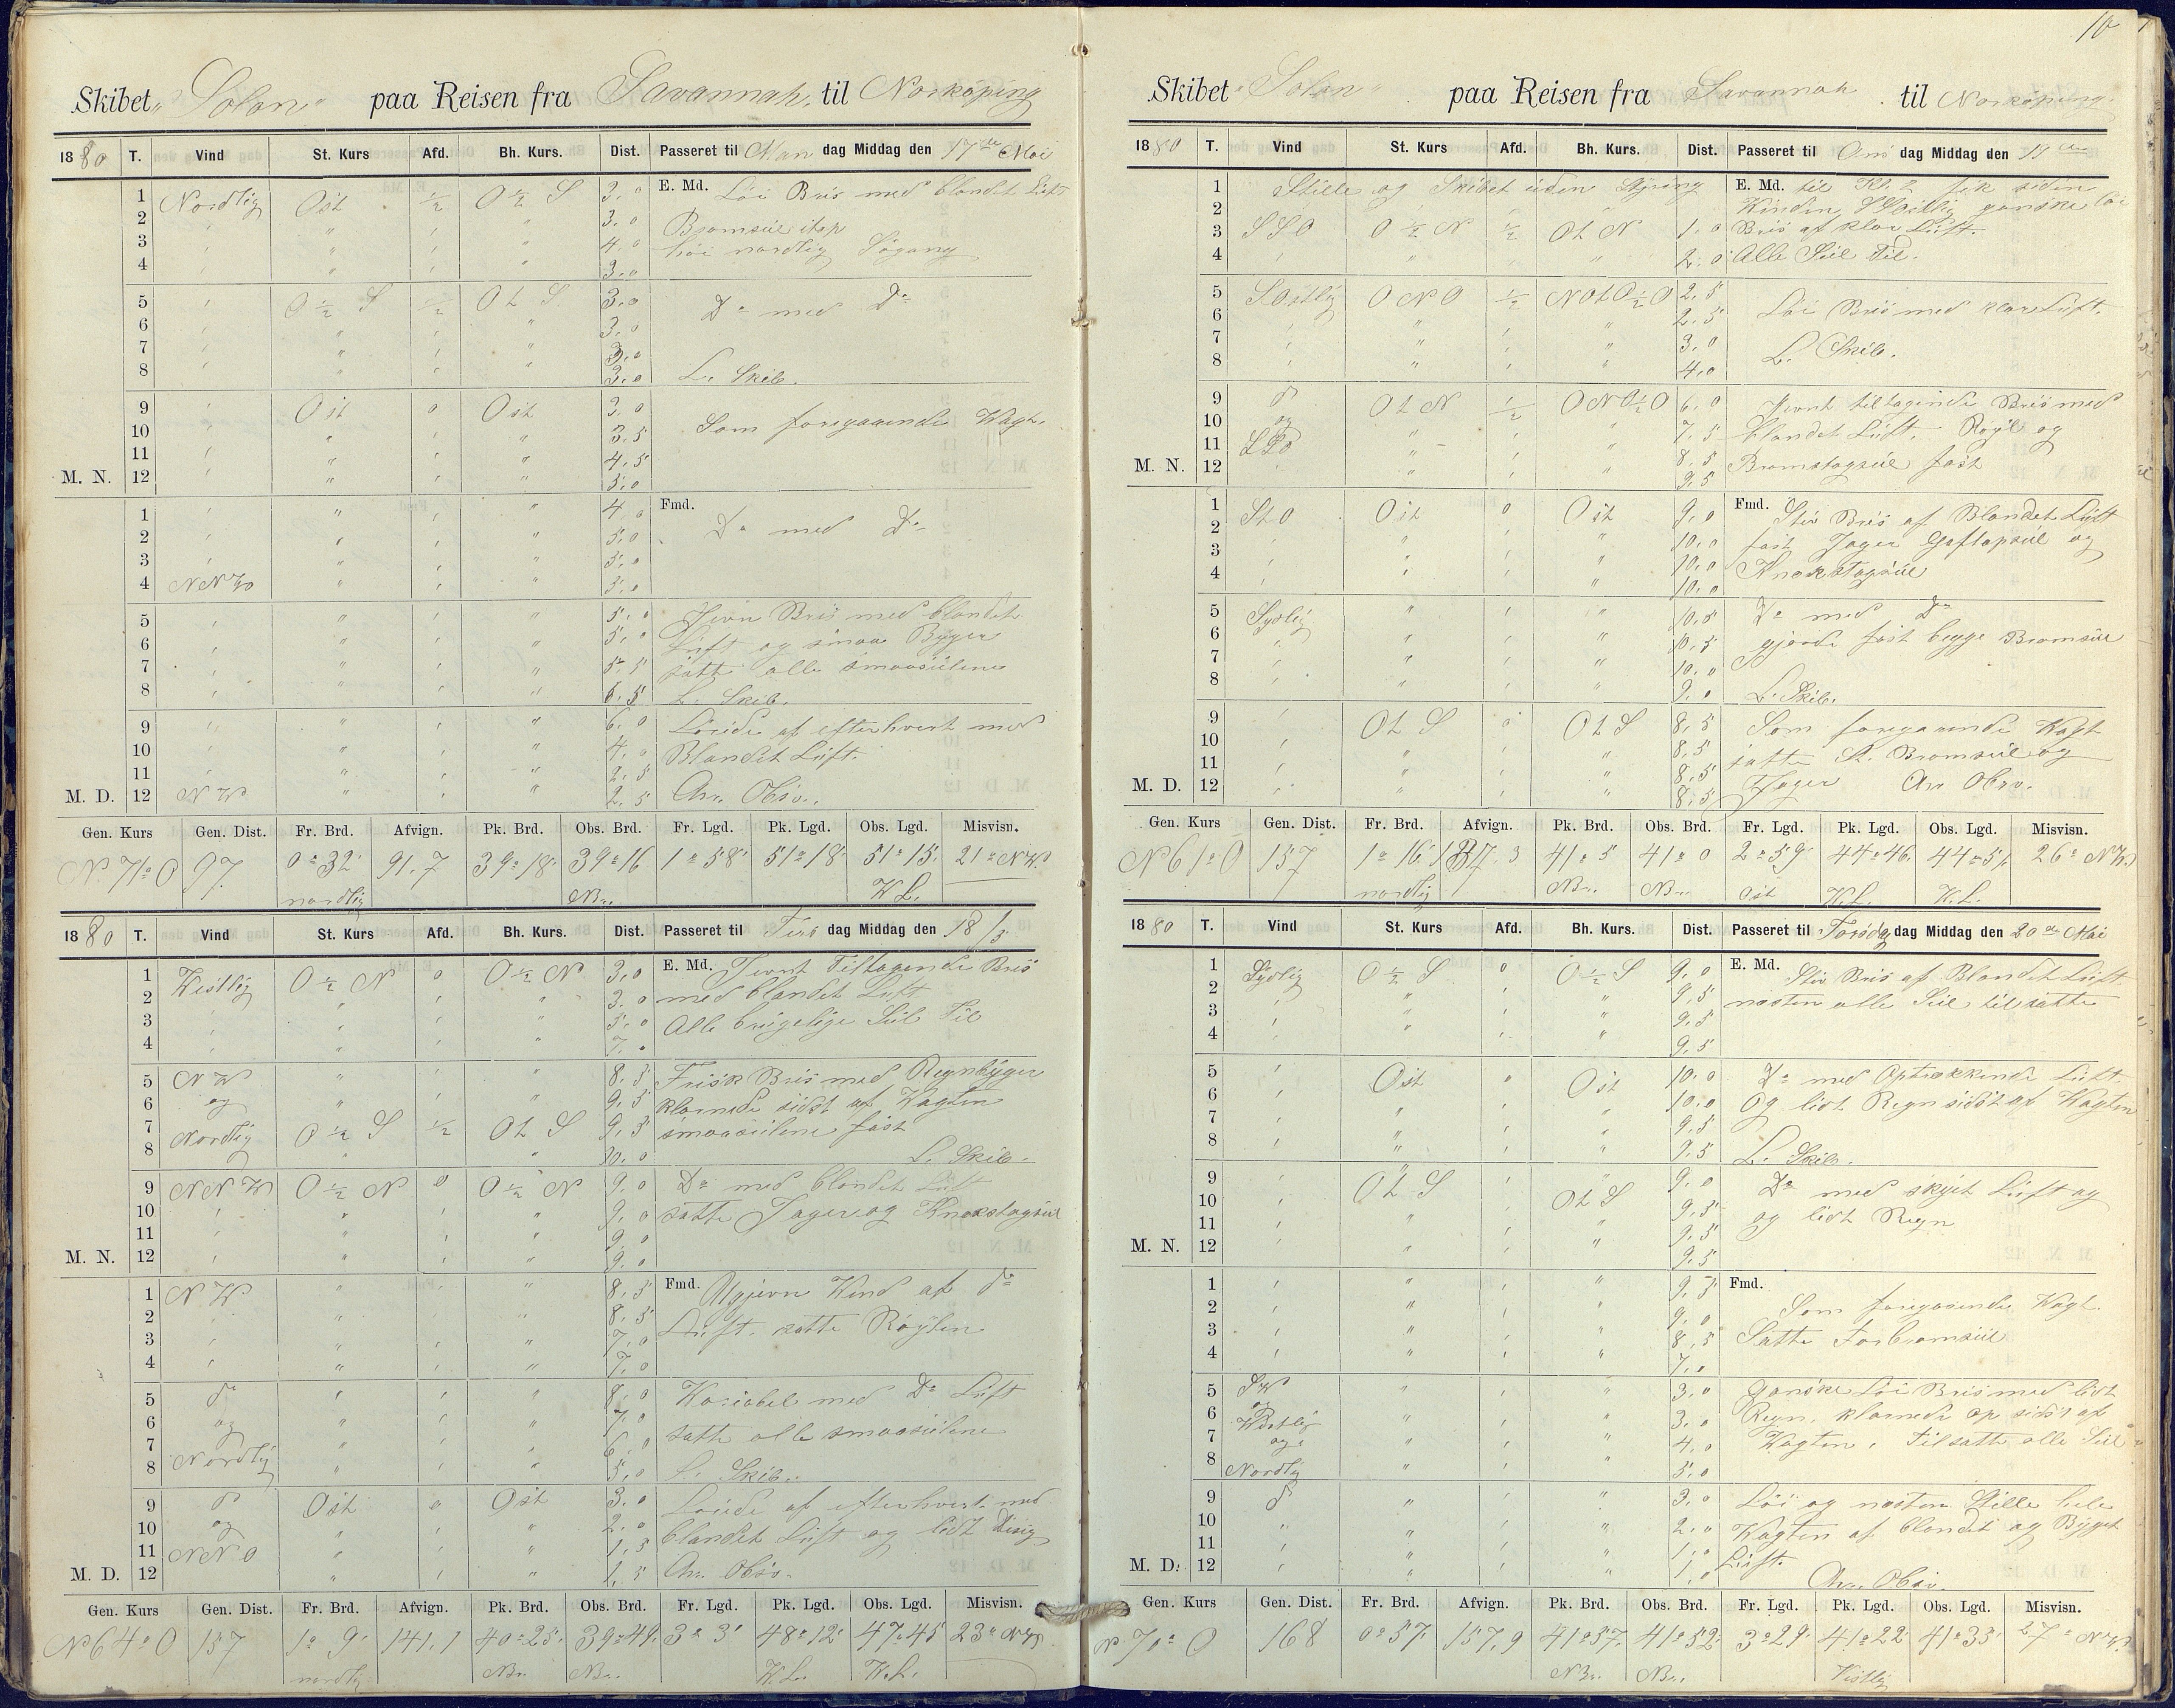 Skibet „Solon“ paa Reisen fra Savannah, til Norköping
1880 T. Vind St. Kurs Afd. Bh. Kurs. Dist. Passeret til Man dag Middag den 17de Mai
1 Nordlig Ost ½ O ½ S 3,0 E. Md. Löi Bris med blandet Luft
2 " " " 3,0 Bramseil itop
3 " " " 4,0 höi nordlig Sögang
4 " " " 3,0
5 " O ½ S ½ O t S 3,0 Do med Do
6 " " " 3,0
7 " " " 3,0
8 " " " 3,0 L. Skib.
9 " Ost 0 Ost 3,0 Som foregaaende Vagt.
10 " " " 3,5
11 " " " 4,5
M. N. 12 " " " 5,0
1 " " " 4,0 Fmd. Do med Do
2 " " " 5,0
3 " " " 5,0
4 NNW " " " 5,0
5 " " " 5,0 Jevn Bris med blandet
6 " " " 5,0 Luft og smaa Byger
7 " " " 5,5 satte alle smaaseilene
8 " " " 6,5 L. Skib.
9 " " " 6,0 Löiede af efterhvert med
10 " " " 4,0 Blandet Luft.
11 " " " 2,5
M. D. 12 NW " " " 2,5 An. Obsv.
Gen. Kurs Gen. Dist. Fr. Brd. Afvign. Pk. Brd. Obs. Brd. Fr. Lgd. Pk. Lgd. Obs. Lgd. Misvisn.
N 71° O 97 0° 32' 91,7 39° 18' 39° 16 1° 58' 51° 18' 51° 15' 21° NW.
nordlig NBr. W.L.
1880 T. Vind St. Kurs Afd. Bh. Kurs. Dist. Passeret til Tirs dag Middag den 18/5
1 Westlig O ½ N 0 O ½ N 3,0 E. Md. Jevnt Tiltagende Bris
2 " " " 3,0 med blandet Luft
3 " " " 5,0 Alle brugelige Seil Til
4 " " " 7,0
5 NW " " " 8,5 Frisk Bris med Regnbyger
6 og " " " 9,5 klarnede sidst af Vagten
7 Nordlig O ½ S ½ O t S 9,5 smaaseilene fast
8 " " 10,0 L. Skib.
9 NNW O ½ N 0 O ½ N 9,0 Do med blandet Luft
10 " " " 9,0 satte Jager og Knækstagseil
11 " " " 9,0
M. N. 12 " " " 9,0
1 NW " " " 8,5 Fmd. Ujevn Vind af do
2 " " " 8,5 Luft. satte Röylen
3 " " " 7,0
4 " " " 7,0
5 do " " " 8,0 Variabel med Do Luft
6 og " " " 7,0 satte alle smaaseilene
7 " " " 6,0
8 Nordlig " " " 5,0 L. Skib.
9 do Ost 0 Ost 3,0 Löiede af efterhvert med
10 og " " " 2,0 blandet Luft og lidt disig
11 NNO " " " 1,5
M. D. 12 " " " 1,5 An. Obsv.
Gen. Kurs Gen. Dist. Fr. Brd. Afvign. Pk. Brd. Obs. Brd. Fr. Lgd. Pk. Lgd. Obs. Lgd. Misvisn.
N 64° O 157 1° 9' 141,1 40° 25' 39° 49' 3° 3' 48° 12' 47° 45 23° NW
nordlig NBr. NBr. W.L. W.L.
10
Skibet „Solon“ paa Reisen fra Savannah til Norköping.
1880 T. Vind St. Kurs Afd. Bh. Kurs. Dist. Passeret til Ons dag Middag den 19de
1 Stille og Skibet uden Styring E. Md. til Kl. 2 fik siden
2 Vinden SOstlig ganske löi
3 SSO O ½ N ½ O t N 1,0 Bris af klar Luft.
4 " " " 2,0 Alle Seil Til.
5 SOstlig ONO ½ NOtO½O 2,5 Löi Bris med klar Luft.
6 " " " 2,5
7 " " " 3,0 L. Skib.
8 " " " 4,0
9 do O t N ½ ONO½O 6,0 Jevnt tiltagende Bris med
10 og " " " 7,5 blandet Luft. Røyl og
11 SSO " " " 8,5 Bramstagseil fast
M. N. 12 " " " 9,5
1 StO Ost 0 Ost 9,0 Fmd. Stiv Bris af Blandet Luft
2 " " " 10,0 fast Jager Gaftopseil og
3 " " " 10,0 Knækstagseil
4 " " " 10,0
5 Sydlig " " " 10,5 Do med Do
6 " " " 10,5 gjorde fast begge Bramseil
7 " " " 10,0
8 " " " 9,0 L. Skib.
9 " O t S 0 O t S 8,5 Som foregaaende Vagt
10 " " " 8,5 satte St. Bramseil og
11 " " " 8,5 Jager An Obsv.
M. D. 12 " " " 8,5
Gen. Kurs Gen. Dist. Fr. Brd. Afvign. Pk. Brd. Obs. Brd. Fr. Lgd. Pk. Lgd. Obs. Lgd. Misvisn.
N 61° O 157 1° 16' 137,3 41° 5 41° 0 2° 59' 44° 46' 44° 51' 26° NW.
nordlig NBr. NBr. Ost W.L. W.L.
1880 T. Vind St. Kurs Afd. Bh. Kurs. Dist. Passeret til Torsdag dag Middag den 20de Mai
1 Sydlig O ½ S 0 O ½ S 9,0 E. Md. Stiv Bris af Blandet Luft
2 " " " 9,5 næsten alle Seil tilsatte
3 " " " 9,5
4 " " " 9,5
5 " Ost 0 Ost 10,0 Do med Optrækkende Luft.
6 " " " 10,0 Og lidt Regn sidst af Vagten
7 " " " 9,5
8 " " " 9,5 L. Skib.
9 " O t S " O t S 9,0 Do med skyet Luft og
10 " " " 9,5 og lidt Regn
11 " " " 9,5
M. N. 12 " " " 9,5
1 " " " 9,5 Fmd.
2 " " " 9,0 Som foregaaende Vagt.
3 " " " 8,5 Satte Forbramseil
4 " " " 7,0
5 SW " " " 3,0 Ganske Löi Bris med lidt
6 og Westlig " " " 3,0 Regn, klarnede op sidst af
7 og " " " 4,0 Vagten, tilsatte alle Seil
8 Nordlig " " " 5,0
9 do " " " 3,0 Löi og næsten Stille hele
10 " " " 2,0 Vagten af blandet og Byget
11 " " " 1,0 Luft.
M. D. 12 " " " 1,0 An. Obsv.
Gen. Kurs Gen. Dist. Fr. Brd. Afvign. Pk. Brd. Obs. Brd. Fr. Lgd. Pk. Lgd. Obs. Lgd. Misvisn.
N 70° O 168 0° 57' 157,9 41° 57' 41° 52' 3° 29' 41° 22' 41° 33' 27° NW.
NBr. NBr. Vestlig